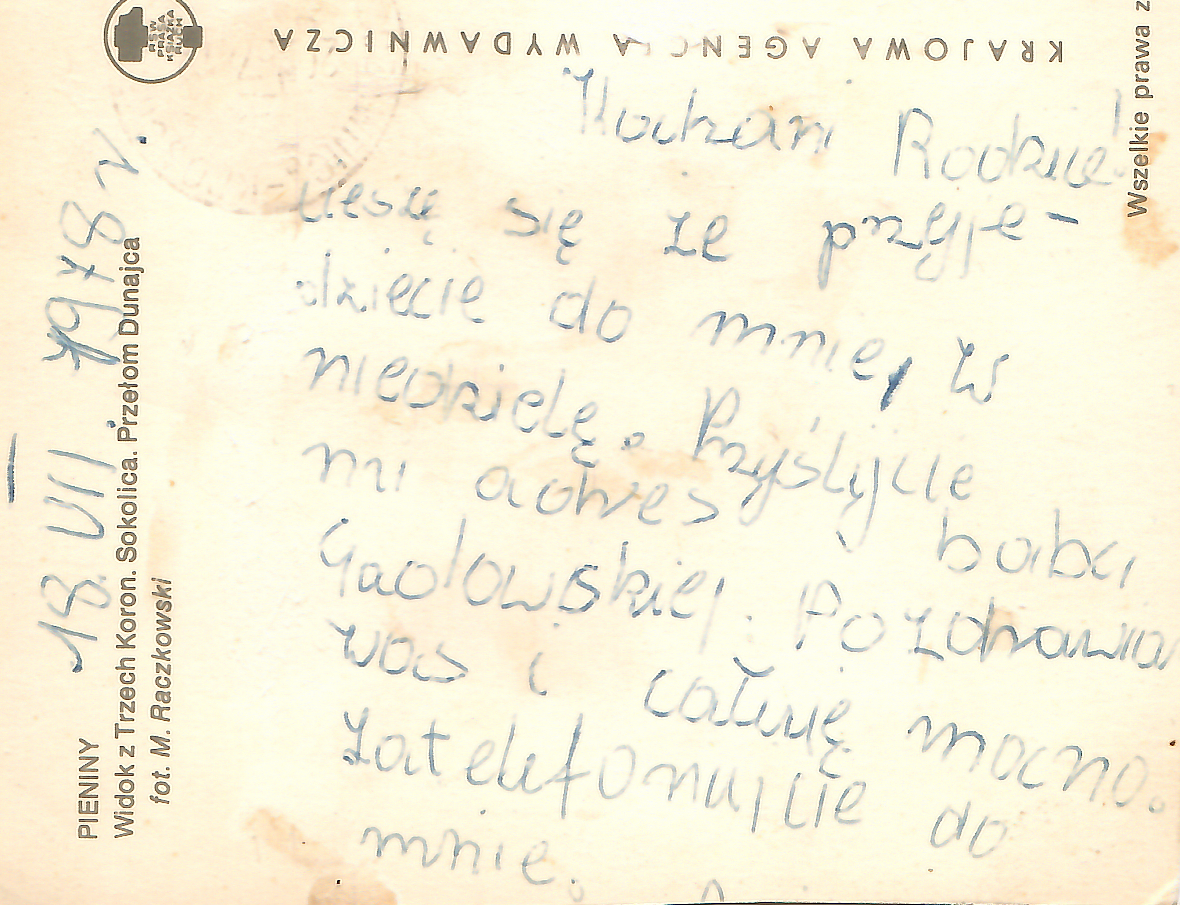 RSW
PRASA
KSIĄŻKA
RUCH
KRAJOWA AGENCJA WYDAWNICZA
Wszelkie prawa z
PIENINY
Widok z Trzech Koron. Sokolica. Przełom Dunajca
fot. M. Raczkowski
18 VII. 1978 r.
Kochani Rodzice!
cieszę się że przyje-
dziecie do mnie, w
niedzielę. Przyślijcie
mi adres babci
Gadowskiej. Pozdrawiam
was i całuję mocno.
Zatelefonujcie do
mnie.